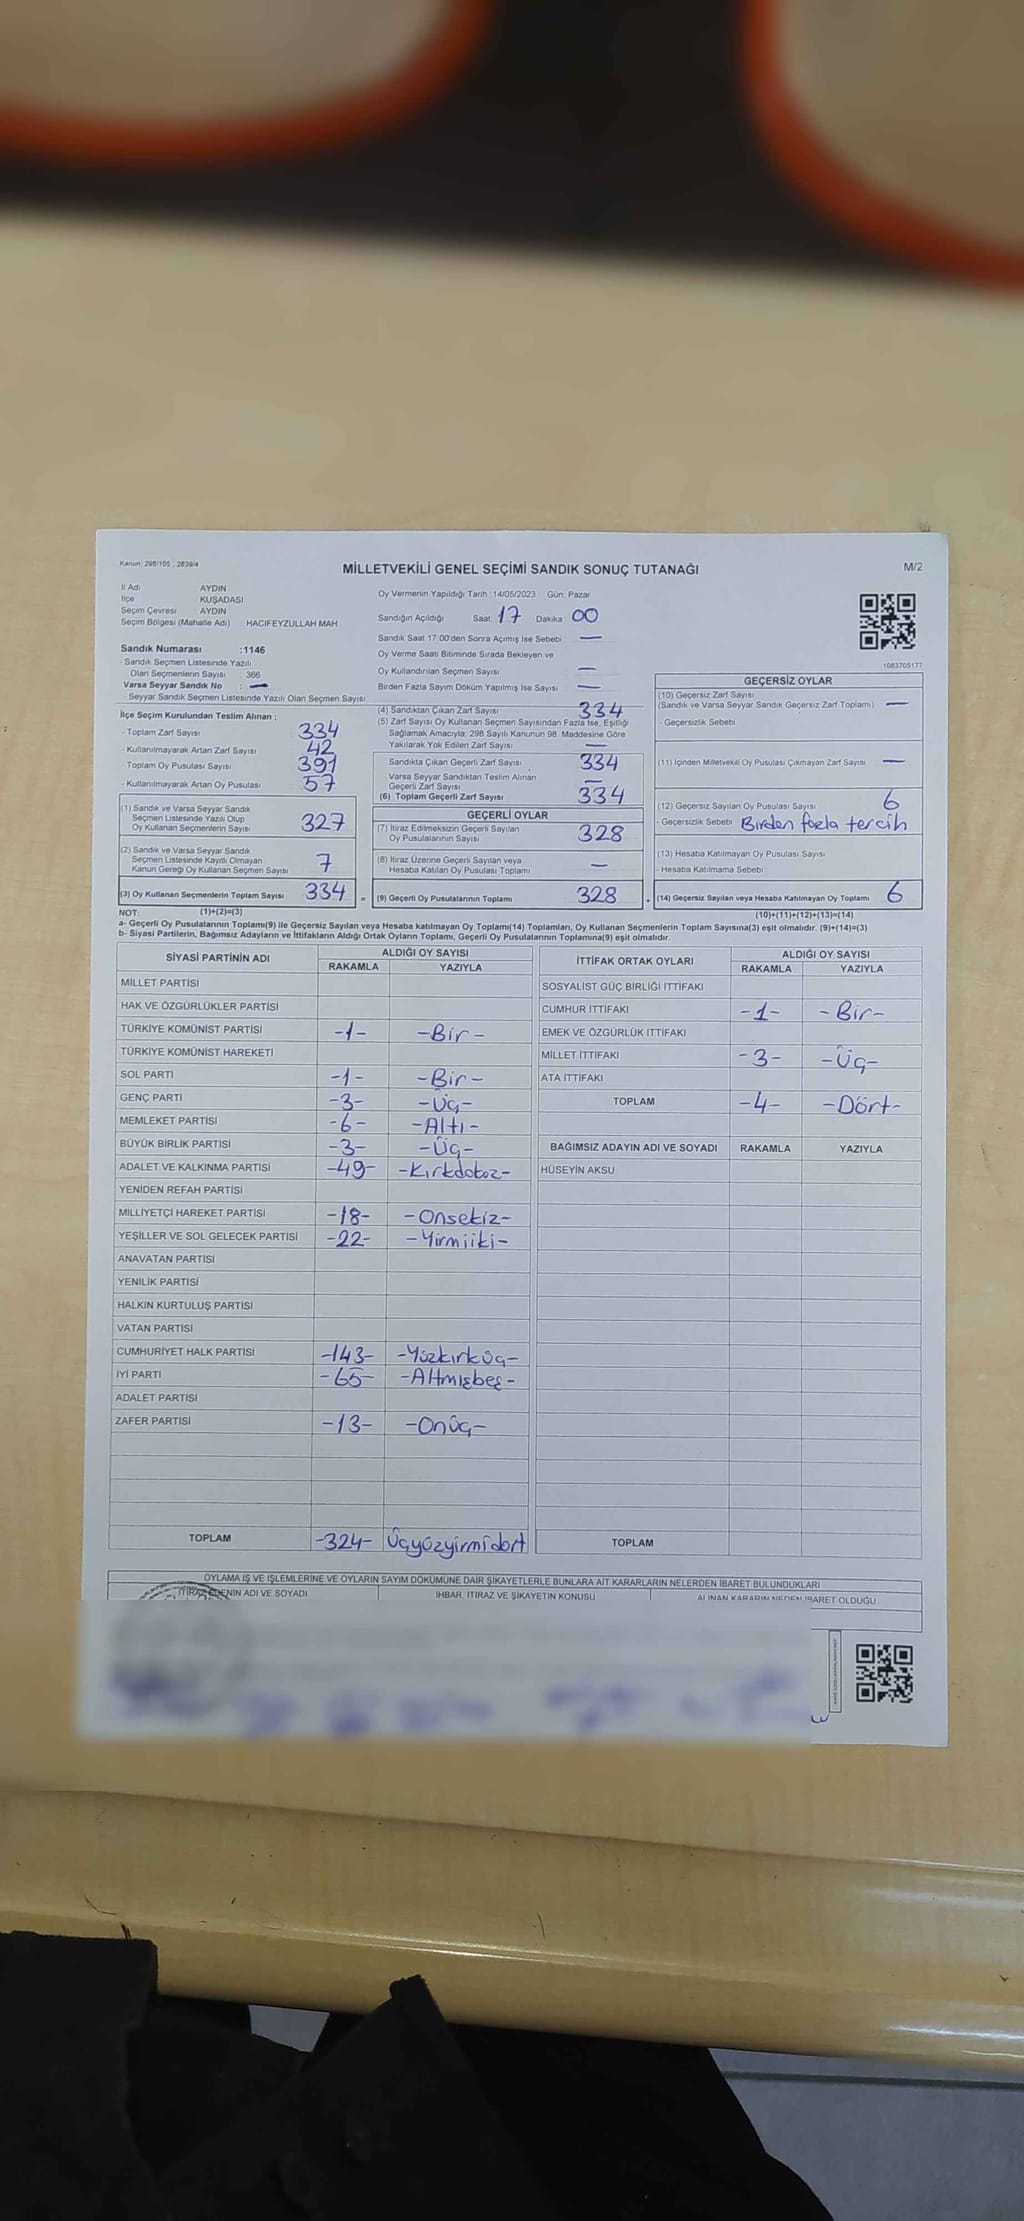 Kanun: 298/105 ; 2839/4
MİLLETVEKİLİ GENEL SEÇİMİ SANDIK SONUÇ TUTANAĞI
M/2
İl Adı AYDIN
İlçe KUŞADASI
Seçim Çevresi AYDIN
Seçim Bölgesi (Mahalle Adı) : HACIFEYZULLAH MAH
Sandık Numarası :1146
- Sandık Seçmen Listesinde Yazılı
Olan Seçmenlerin Sayısı : 366
Varsa Seyyar Sandık No : —
- Seyyar Sandık Seçmen Listesinde Yazılı Olan Seçmen Sayısı
Oy Vermenin Yapıldığı Tarih :14/05/2023 Gün: Pazar
Sandığın Açıldığı Saat 17 Dakika 00
Sandık Saat 17:00'den Sonra Açımış İse Sebebi —
Oy Verme Saati Bitiminde Sırada Bekleyen ve
Oy Kullandırılan Seçmen Sayısı —
Birden Fazla Sayım Döküm Yapılmış İse Sayısı —
1083705177
İlçe Seçim Kurulundan Teslim Alınan ;
- Toplam Zarf Sayısı 334
- Kullanılmayarak Artan Zarf Sayısı 42
- Toplam Oy Pusulası Sayısı 391
- Kullanılmayarak Artan Oy Pusulası 57
(1) Sandık ve Varsa Seyyar Sandık
Seçmen Listesinde Yazılı Olup
Oy Kullanan Seçmenlerin Sayısı 327
(2) Sandık ve Varsa Seyyar Sandık
Seçmen Listesinde Kayıtlı Olmayan
Kanun Gereği Oy Kullanan Seçmen Sayısı 7
(3) Oy Kullanan Seçmenlerin Toplam Sayısı 334
(1)+(2)=(3)
(4) Sandıktan Çıkan Zarf Sayısı 334
(5) Zarf Sayısı Oy Kullanan Seçmen Sayısından Fazla İse, Eşitliği
Sağlamak Amacıyla, 298 Sayılı Kanunun 98. Maddesine Göre
Yakılarak Yok Edilen Zarf Sayısı —
Sandıkta Çıkan Geçerli Zarf Sayısı 334
Varsa Seyyar Sandıktan Teslim Alınan
Geçerli Zarf Sayısı —
(6) Toplam Geçerli Zarf Sayısı 334
GEÇERLİ OYLAR
(7) İtiraz Edilmeksizin Geçerli Sayılan
Oy Pusulalarının Sayısı 328
(8) İtiraz Üzerine Geçerli Sayılan veya
Hesaba Katılan Oy Pusulası Toplamı —
= (9) Geçerli Oy Pusulalarının Toplamı 328
GEÇERSİZ OYLAR
(10) Geçersiz Zarf Sayısı
(Sandık ve Varsa Seyyar Sandık Geçersiz Zarf Toplamı) —
- Geçersizlik Sebebi
(11) İçinden Milletvekili Oy Pusulası Çıkmayan Zarf Sayısı —
(12) Geçersiz Sayılan Oy Pusulası Sayısı 6
- Geçersizlik Sebebi Birden fazla tercih
(13) Hesaba Katılmayan Oy Pusulası Sayısı
- Hesaba Katılmama Sebebi
+ (14) Geçersiz Sayılan veya Hesaba Katılmayan Oy Toplamı 6
(10)+(11)+(12)+(13)=(14)
NOT:
a- Geçerli Oy Pusulalarının Toplamı(9) ile Geçersiz Sayılan veya Hesaba katılmayan Oy Toplamı(14) Toplamları, Oy Kullanan Seçmenlerin Toplam Sayısına(3) eşit olmalıdır. (9)+(14)=(3)
b- Siyasi Partilerin, Bağımsız Adayların ve İttifakların Aldığı Ortak Oyların Toplamı, Geçerli Oy Pusulalarının Toplamına(9) eşit olmalıdır.
SİYASİ PARTİNİN ADI ALDIĞI OY SAYISI
RAKAMLA YAZIYLA
MİLLET PARTİSİ
HAK VE ÖZGÜRLÜKLER PARTİSİ
TÜRKİYE KOMÜNİST PARTİSİ -1- -Bir-
TÜRKİYE KOMÜNİST HAREKETİ
SOL PARTİ -1- -Bir-
GENÇ PARTİ -3- -Üç-
MEMLEKET PARTİSİ -6- -Altı-
BÜYÜK BİRLİK PARTİSİ -3- -Üç-
ADALET VE KALKINMA PARTİSİ -49- -Kırkdokuz-
YENİDEN REFAH PARTİSİ
MİLLİYETÇİ HAREKET PARTİSİ -18- -Onsekiz-
YEŞİLLER VE SOL GELECEK PARTİSİ -22- -Yirmiiki-
ANAVATAN PARTİSİ
YENİLİK PARTİSİ
HALKIN KURTULUŞ PARTİSİ
VATAN PARTİSİ
CUMHURİYET HALK PARTİSİ -143- -Yüzkırküç-
İYİ PARTİ -65- -Altmışbeş-
ADALET PARTİSİ
ZAFER PARTİSİ -13- -Onüç-
TOPLAM -324- Üçyüzyirmidört
İTTİFAK ORTAK OYLARI ALDIĞI OY SAYISI
RAKAMLA YAZIYLA
SOSYALİST GÜÇ BİRLİĞİ İTTİFAKI
CUMHUR İTTİFAKI -1- -Bir-
EMEK VE ÖZGÜRLÜK İTTİFAKI
MİLLET İTTİFAKI -3- -Üç-
ATA İTTİFAKI
TOPLAM -4- -Dört-
BAĞIMSIZ ADAYIN ADI VE SOYADI RAKAMLA YAZIYLA
HÜSEYİN AKSU
TOPLAM
OYLAMA İŞ VE İŞLEMLERİNE VE OYLARIN SAYIM DÖKÜMÜNE DAİR ŞİKAYETLERLE BUNLARA AİT KARARLARIN NELERDEN İBARET BULUNDUKLARI
İTİRAZ EDENİN ADI VE SOYADI İHBAR, İTİRAZ VE ŞİKAYETİN KONUSU ALINAN KARARIN NEDEN İBARET OLDUĞU